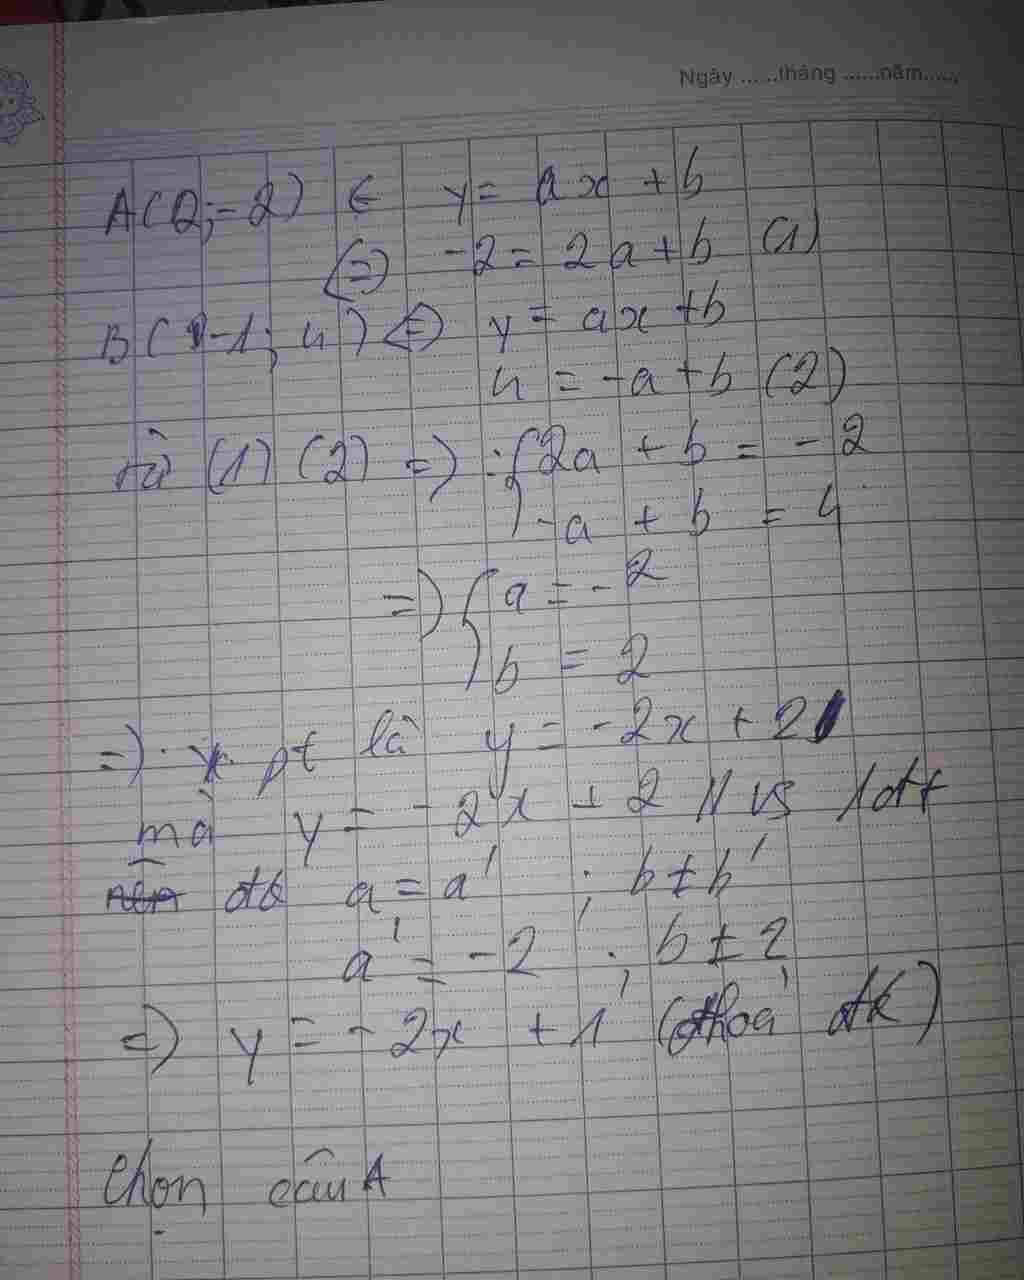 Ngày ......tháng ......năm......
A(2;-2) ∈ y = ax + b
(=) -2 = 2a + b (1)
B(-1; 4) (=) y = ax + b
4 = -a + b (2)
từ (1) (2) =) : { 2a + b = -2
-a + b = 4
=) { a = -2
b = 2
=) pt là y = -2x + 2
mà y = -2x + 2 // vs 1 đt
đk a = a' ; b ≠ b'
a' = -2 ; b ≠ 2
=) y = -2x + 1 (thoả đk)
Chọn câu A